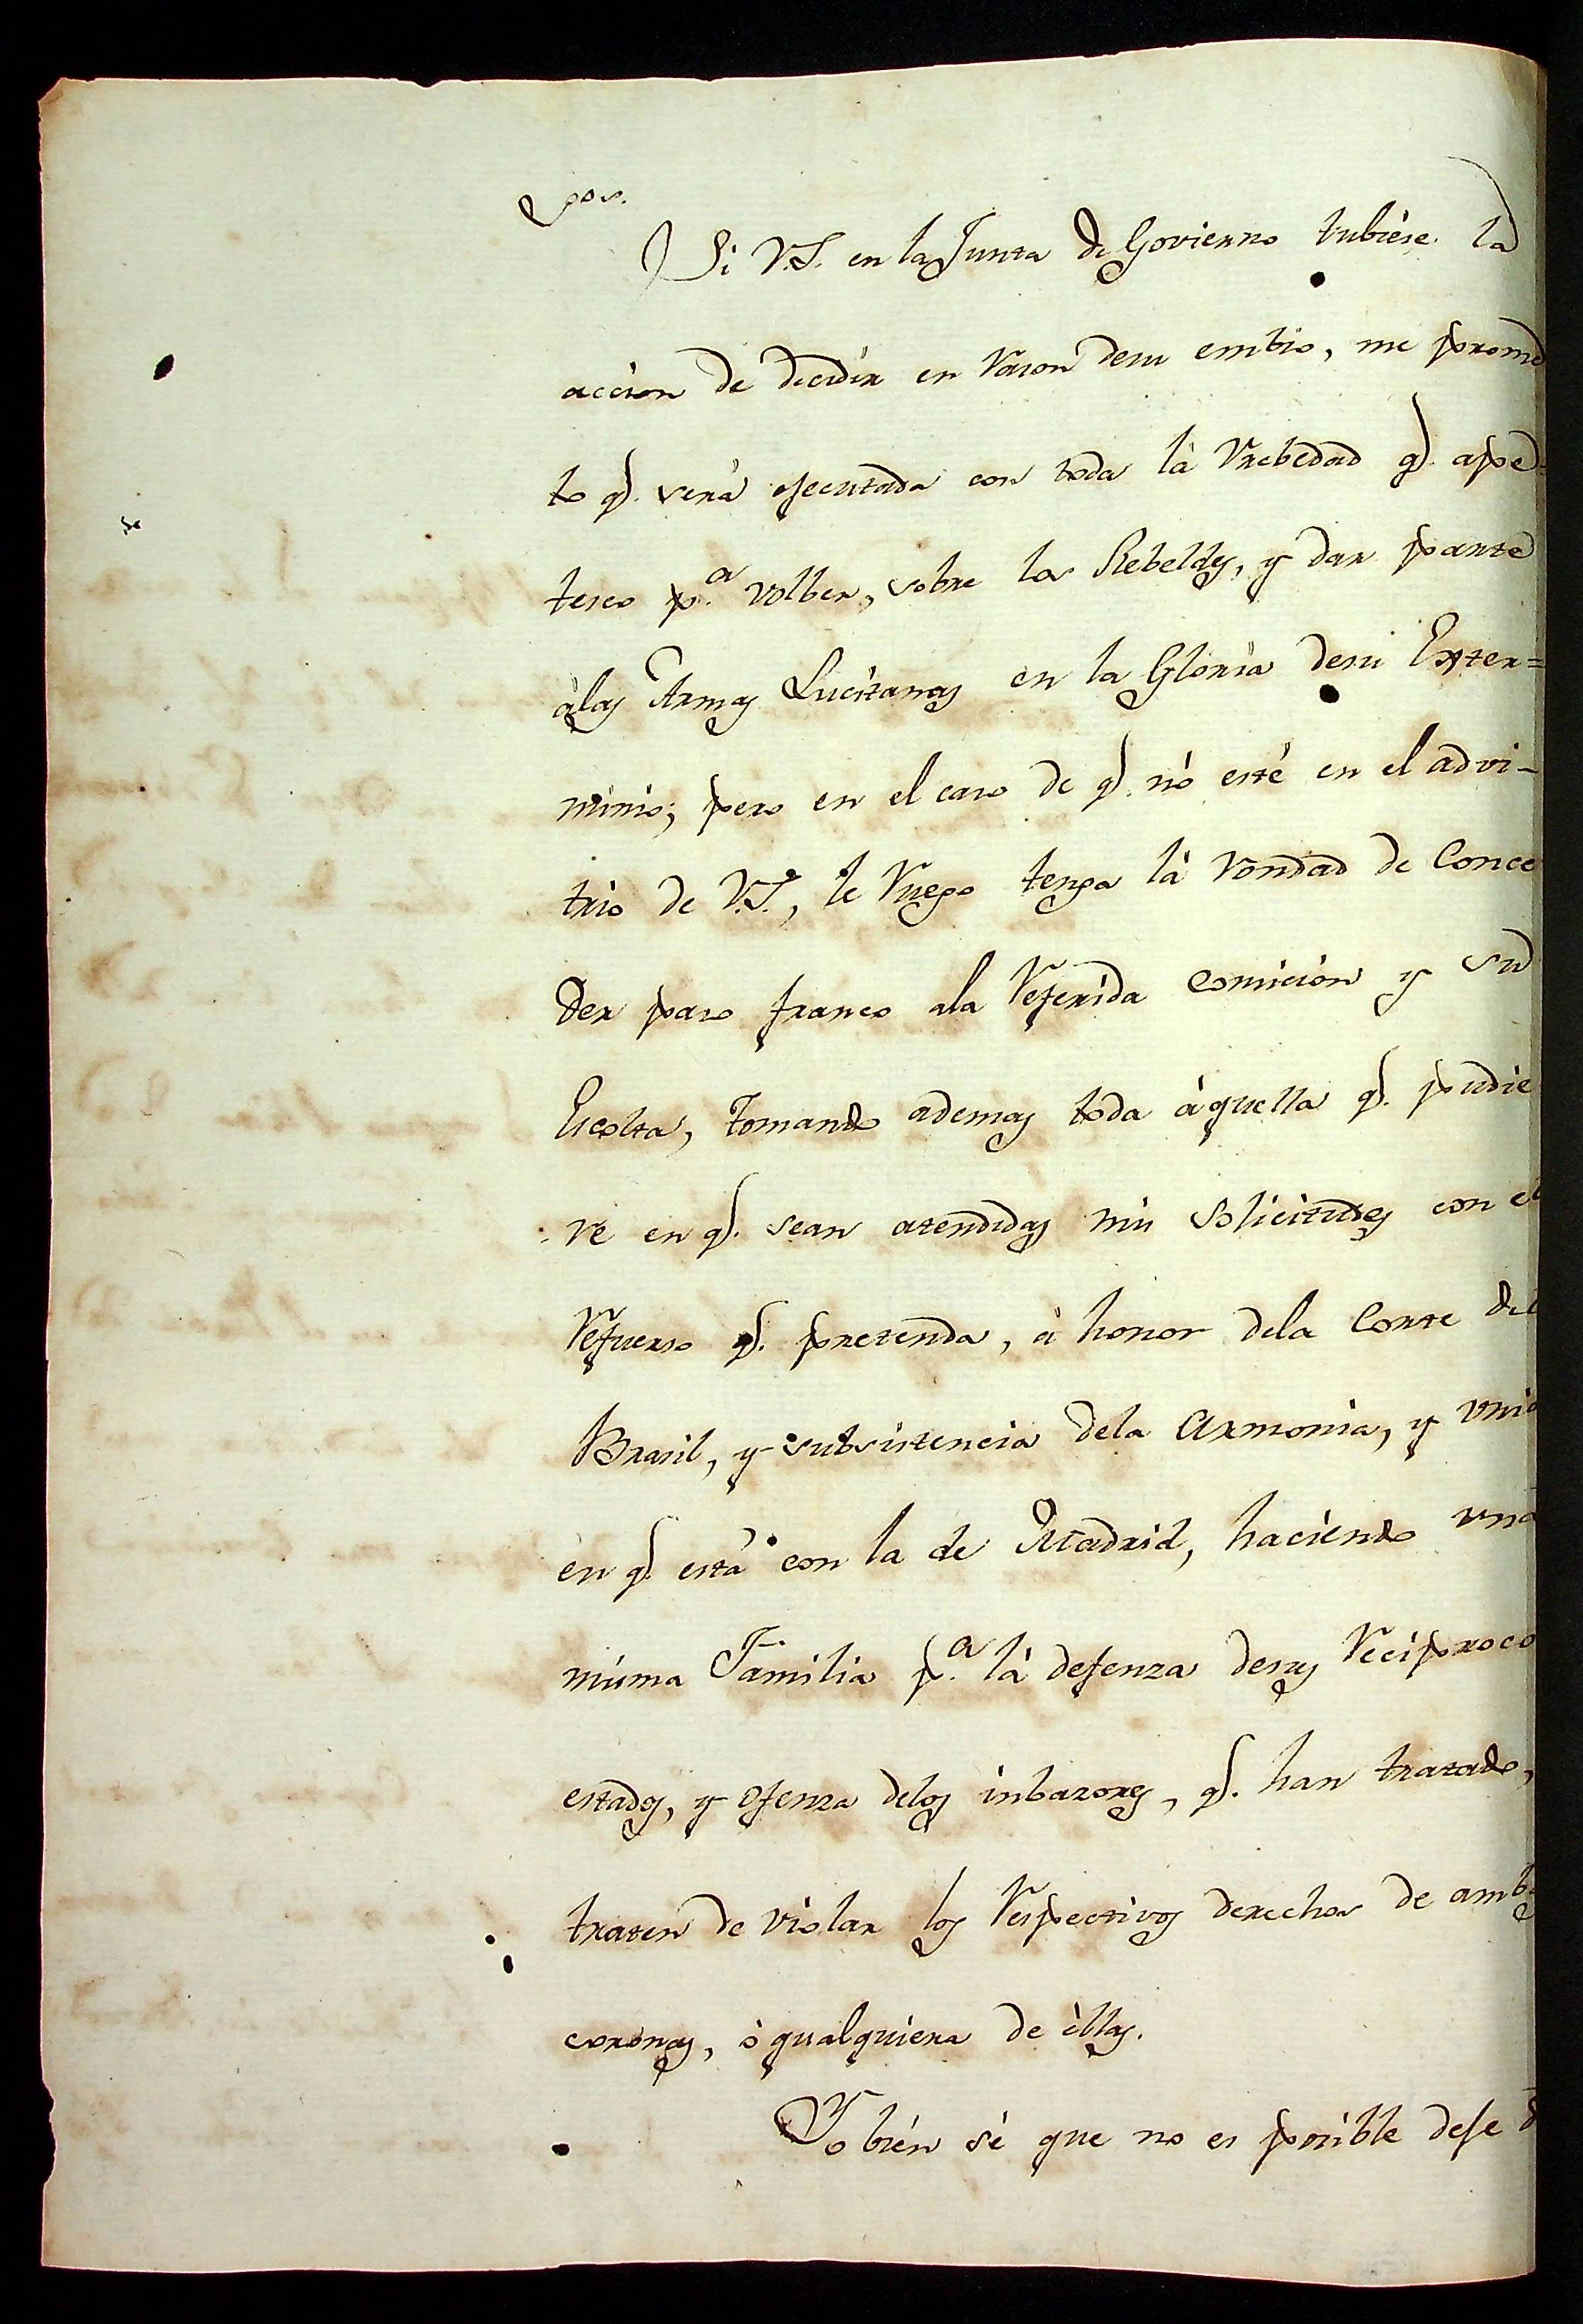 pos.
Si V.S. en la Junta de Govierno tubiese la
accion de decidir en rason desu embio, me prome
to q.e será ejecutada con toda là vrebedad q.e ape
tesco p.a volber, sobre los Rebeldes, y dar parte
àlas Armas Lucitanas en la Gloria desu Exter=
minio; pero en el caso de q.e nó esté en el advi-
trio de V.S., le ruego tenga là vondad de Conce
der paso franco ala referida comición y su
Escolta, tomando ademas toda áquella q.e pudie
re en q.e sean atendidas mis solicitudes con el
refuerso q.e pretenda, á honor dela Corte del
Brasil, y subsistencia dela Armonia, y unio
en q.e está con la de Madrid, haciendo una
misma Familia p.a là defenza desus reciproco
estados, y ofenza delos inbazores, q.e han tratado,
traten de violar los respectivos derechos de amb
coronas, ò qualquiera de èllas.
Yo bién sé que no es posible defe